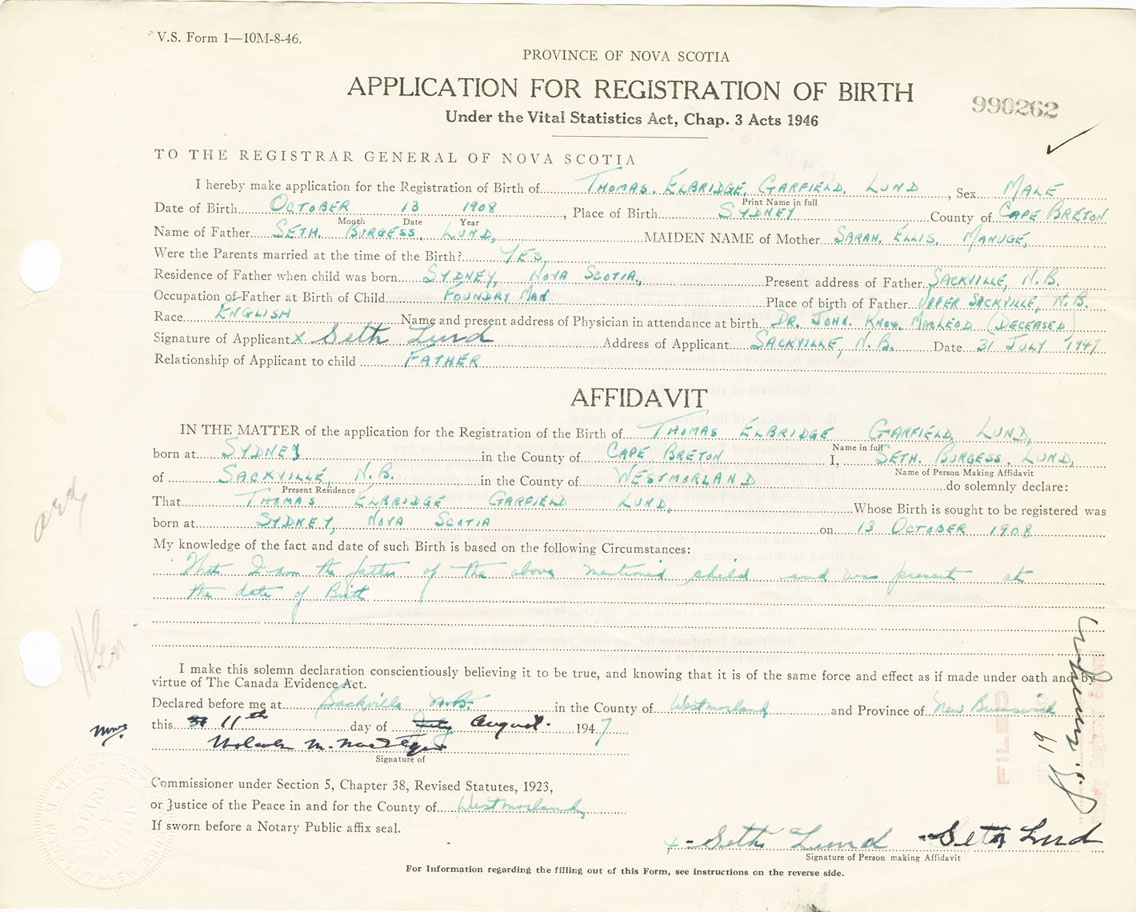 V.S. Form 1—10M-8-46.
PROVINCE OF NOVA SCOTIA
APPLICATION FOR REGISTRATION OF BIRTH
990262
Under the Vital Statistics Act, Chap. 3 Acts 1946
TO THE REGISTRAR GENERAL OF NOVA SCOTIA
I hereby make application for the Registration of Birth of THOMAS. ELBRIDGE, GARFIELD, LUND, Sex MALE
Print Name in full
Date of Birth OCTOBER 13 1908, Place of Birth SYDNEY County of CAPE BRETON
Month Date Year
Name of Father SETH. BURGESS, LUND, MAIDEN NAME of Mother SARAH. ELLIS. MANUGE,
Were the Parents married at the time of the Birth? YES,
Residence of Father when child was born SYDNEY, NOVA SCOTIA, Present address of Father SACKVILLE, N.B.
Occupation of Father at Birth of Child FOUNDRY MAN Place of birth of Father UPPER SACKVILLE, N.B.
Race ENGLISH Name and present address of Physician in attendance at birth DR. JOHN. KNOX. MACLEOD (DECEASED)
Signature of Applicant x Seth Lund Address of Applicant SACKVILLE, N.B. Date 31 JULY 1947
Relationship of Applicant to child FATHER
AFFIDAVIT
IN THE MATTER of the application for the Registration of the Birth of THOMAS ELBRIDGE GARFIELD, LUND,
Name in full
born at SYDNEY in the County of CAPE BRETON I, SETH. BURGESS, LUND,
Name of Person Making Affidavit
of SACKVILLE, N.B. in the County of WESTMORLAND do solemnly declare:
Present Residence
That THOMAS ELBRIDGE GARFIELD LUND, Whose Birth is sought to be registered was
born at SYDNEY, NOVA SCOTIA on 13 OCTOBER 1908
My knowledge of the fact and date of such Birth is based on the following Circumstances:
That I am the father of the above mentioned child and was present at
the date of Birth
I make this solemn declaration conscientiously believing it to be true, and knowing that it is of the same force and effect as if made under oath and by
virtue of The Canada Evidence Act.
Declared before me at Sackville N.B. in the County of Westmorland and Province of New Brunswick
this 11th day of August 1947
Signature of
Commissioner under Section 5, Chapter 38, Revised Statutes, 1923,
or Justice of the Peace in and for the County of Westmorland
If sworn before a Notary Public affix seal.
FILED
19
x- Seth Lund - Seth Lund
Signature of Person making Affidavit
For Information regarding the filling out of this Form, see instructions on the reverse side.